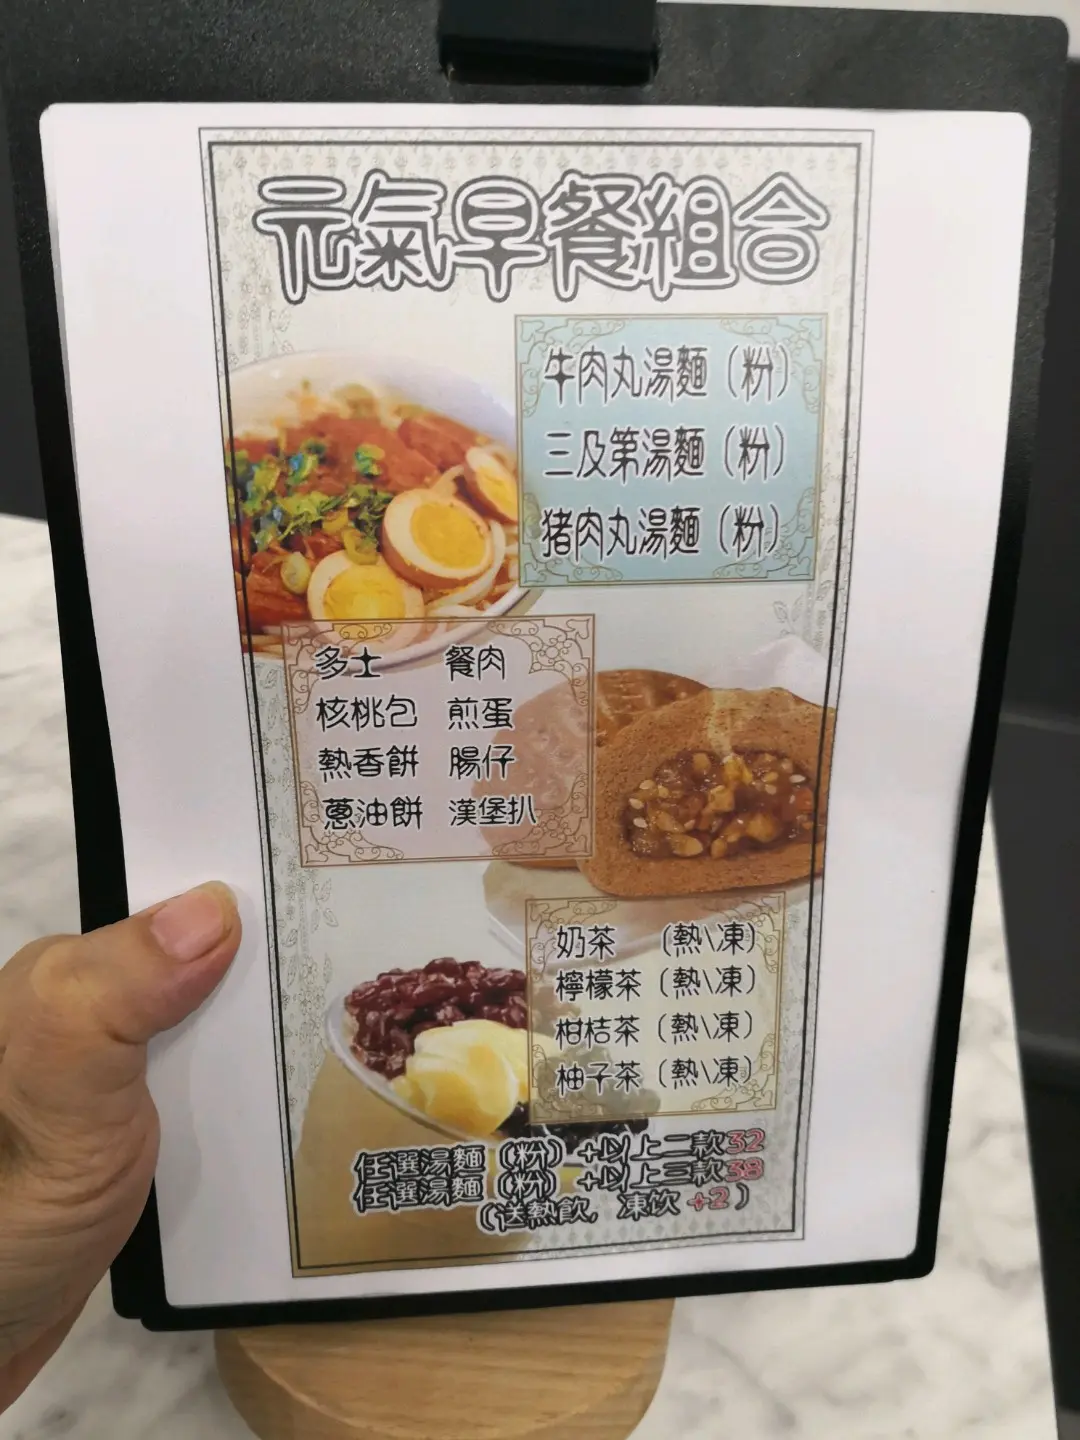 元氣早餐組合
牛肉丸湯麵（粉）
三及第湯麵（粉）
猪肉丸湯麵（粉）
多士 餐肉
核桃包 煎蛋
熱香餅 腸仔
蔥油餅 漢堡扒
奶茶 (熱\凍)
檸檬茶 (熱\凍)
柑桔茶 (熱\凍)
柚子茶 (熱\凍)
任選湯麵（粉）+以上二款32
任選湯麵（粉）+以上三款38
（送熱飲，凍饮+2）